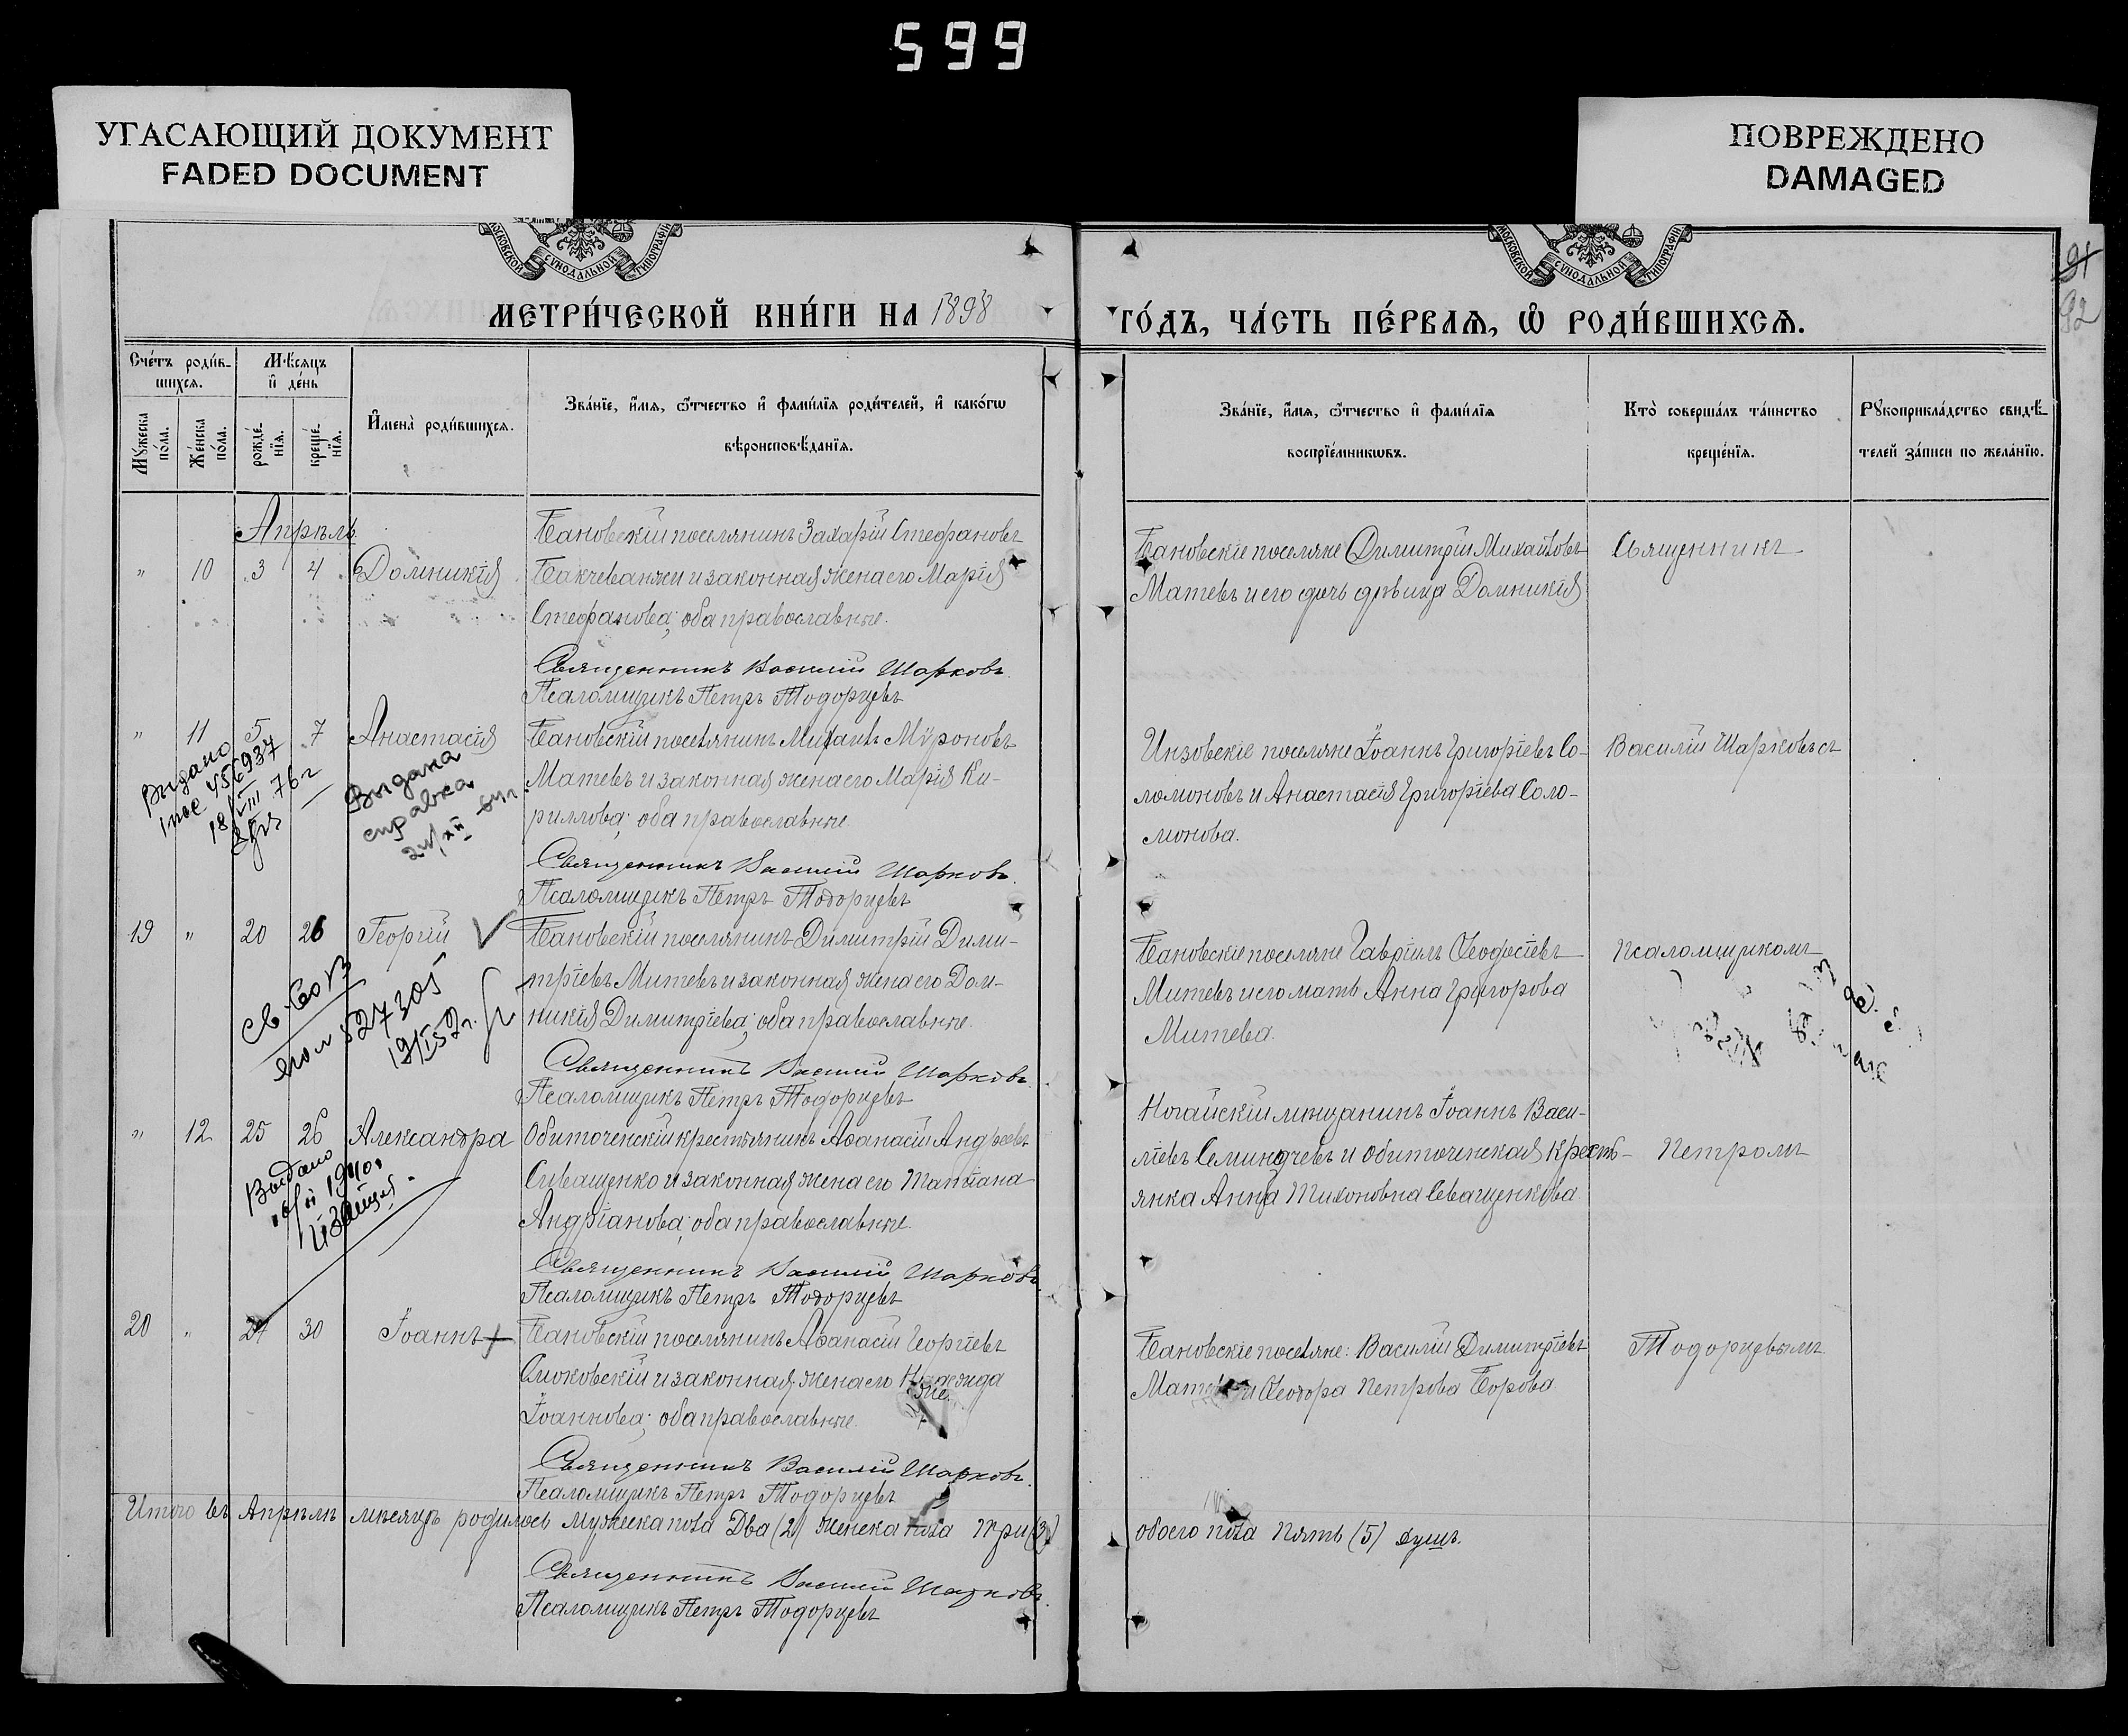 599
УГАСАЮЩИЙ ДОКУМЕНТ
FADED DOCUMENT
ПОВРЕЖДЕНО
DAMAGED
МОСКОВСКОЙ СѴНОДАЛЬНОЙ ТИПОГРАФІИ
МОСКОВСКОЙ СѴНОДАЛЬНОЙ ТИПОГРАФІИ
91
92
МЕТРИ́ЧЕСКОЙ КНИ́ГИ НА 1898
ГО́ДЪ, ЧА́СТЬ ПЕ́РВАѦ, Ѡ҆ РОДИ́ВШИХСѦ.
Сче́тъ роди́в-
шихсѧ.
Мꙋ́жеска по́ла.
Же́нска по́ла.
Мѣ́сѧцъ
и҆ де́нь
рожде́-
нїѧ.
креще́-
нїѧ.
И҆мена̀ роди́вшихсѧ.
Зва́нїе, и҆́мѧ, ѻ҆́тчество и҆ фами́лїѧ роди́телей, и҆ како́гѡ
вѣроисповѣ́данїѧ.
Зва́нїе, и҆́мѧ, ѻ҆́тчество и҆ фами́лїѧ
воспрїе́мникѡвъ.
Кто̀ соверша́лъ та́инство
креще́нїѧ.
Рꙋкоприкла́дство свидѣ́-
телей за́писи по жела́нїю.
Апрѣль
" 10 3 4 Домникія
Бановскій поселянинъ Захарій Стефановъ
и законная жена его Марія
Стефанова; оба православные.
Священникъ Василій Шарковъ.
Псаломщикъ Петръ Тодорцевъ
Бановскіе поселяне Димитрій Михайловъ
Матевъ и его дочь дѣвица Домникія
Священникъ
" 11 5 7 Анастасія
Бановскій поселянинъ Михаилъ Мѵроновъ
Матевъ и законная жена его Марія Ки-
риллова; оба православные.
Священникъ Василій Шарковъ.
Псаломщикъ Петръ Тодорцевъ
Выдано
456937
18/VIII 76 г
Выдана
справка
Инзовскіе поселяне Іоаннъ Григоріевъ Со-
ломоновъ и Анастасія Григоріева Соло-
монова.
Василій Шарковъ съ
19 " 20 26 Георгій
Бановскій поселянинъ Димитрій Дими-
тріевъ Митевъ и законная жена его Дом-
никія Димитріева; оба православные.
Священникъ Василій Шарковъ.
Псаломщикъ Петръ Тодорцевъ
527305
Бановскіе поселяне Гавріилъ Ѳеодосіевъ
Митевъ и его мать Анна Григорова
Митева.
псаломщикомъ
" 12 25 26 Александра
Обиточенскій крестьянинъ Аѳанасій Андреевъ
Сиващенко и законная жена его Татіана
Андріанова; оба православные.
Священникъ Василій Шарковъ
Псаломщикъ Петръ Тодорцевъ
Выдано
Ногайскій мѣщанинъ Іоаннъ Васи-
ліевъ и Обиточенская кресть-
янка Анна Тихоновна Сиващенкова
Петромъ
20 " 30 Іоаннъ
Бановскій поселянинъ Аѳанасій Георгіевъ
и законная жена его Надежда
Іоаннова; оба православные.
Священникъ Василій Шарковъ.
Псаломщикъ Петръ Тодорцевъ
Бановскіе поселяне: Василій Димитріевъ
и Ѳеодора Петрова Борова.
Тодорцевымъ
Итого въ Апрѣлѣ мѣсяцѣ родилось мужеска пола Два (2) женска пола три (3)
обоего пола Пять (5) душъ.
Священникъ Василій Шарковъ.
Псаломщикъ Петръ Тодорцевъ